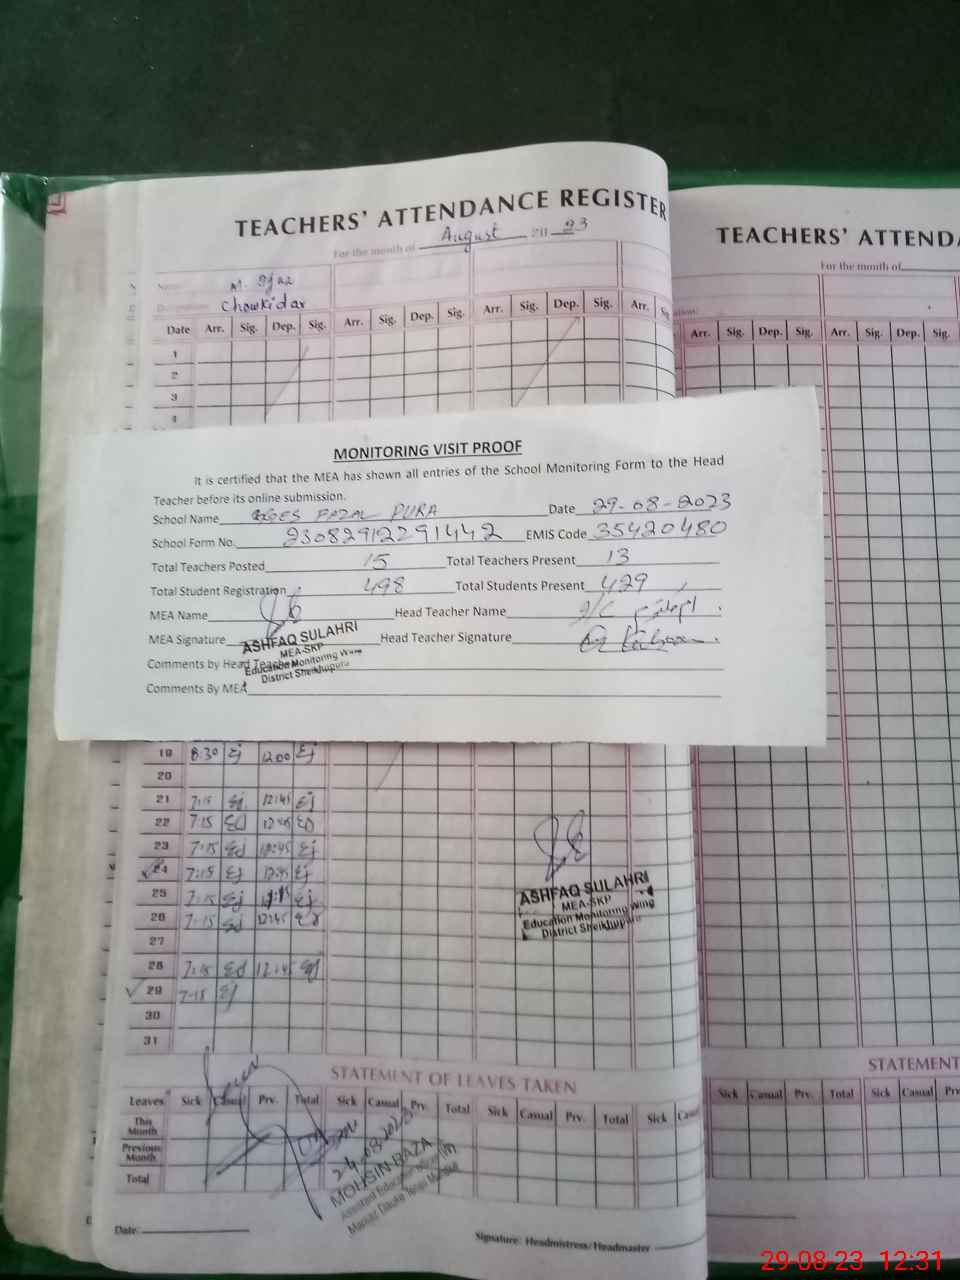 TEACHERS' ATTENDANCE REGISTER
For the month of August 2023
Name: M. Ijaz
Designation: Chowkidar
Date Arr. Sig. Dep. Sig. Arr. Sig. Dep. Sig. Arr. Sig. Dep. Sig. Arr. Sig.
1
2
3
4
TEACHERS' ATTEND
For the month of
Arr. Sig. Dep. Sig. Arr. Sig. Dep. Sig.
MONITORING VISIT PROOF
It is certified that the MEA has shown all entries of the School Monitoring Form to the Head
Teacher before its online submission.
School Name GGES FAZAL PURA Date 29-08-2023
School Form No. 23082912291442 EMIS Code 35420480
Total Teachers Posted 15 Total Teachers Present 13
Total Student Registration 498 Total Students Present 429
MEA Name Head Teacher Name I/C
MEA Signature Head Teacher Signature
ASHFAQ SULAHRI
MEA-SKP
Education Monitoring Wing
District Sheikhupura
Comments by Head Teacher
Comments By MEA
19 8:30 Ej 12:00 Ej
20
21 7:15 Ej 12:45 Ej
22 7:15 12:45
23 7:15 Ej 12:45 Ej
24 7:15 Ej 12:45 Ej
25 7:15 Ej Ej
26 7:15 Ej 12:45
27
28 7:15 Ej 12:45 Ej
29 7-15 Ej
30
31
ASHFAQ SULAHRI
MEA-SKP
Education Monitoring Wing
District Sheikhupura
STATEMENT OF LEAVES TAKEN
Leaves Sick Casual Prv. Total Sick Casual Prv. Total Sick Casual Prv. Total Sick
This Month
Previous Month
Total
24.08.2023
MOHSIN RAZA
Date:
Signature: Headmistress/Headmaster
STATEMENT
Sick Casual Prv. Total Sick Casual
29-08-23 12:31